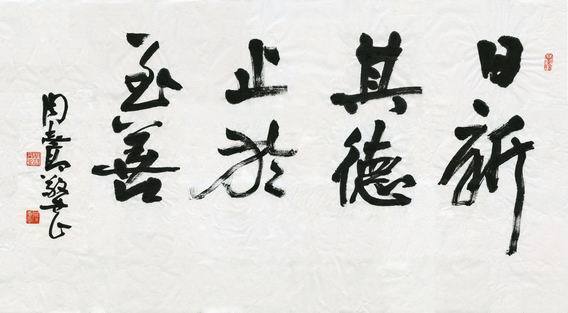 日新
其德
止於
至善
周